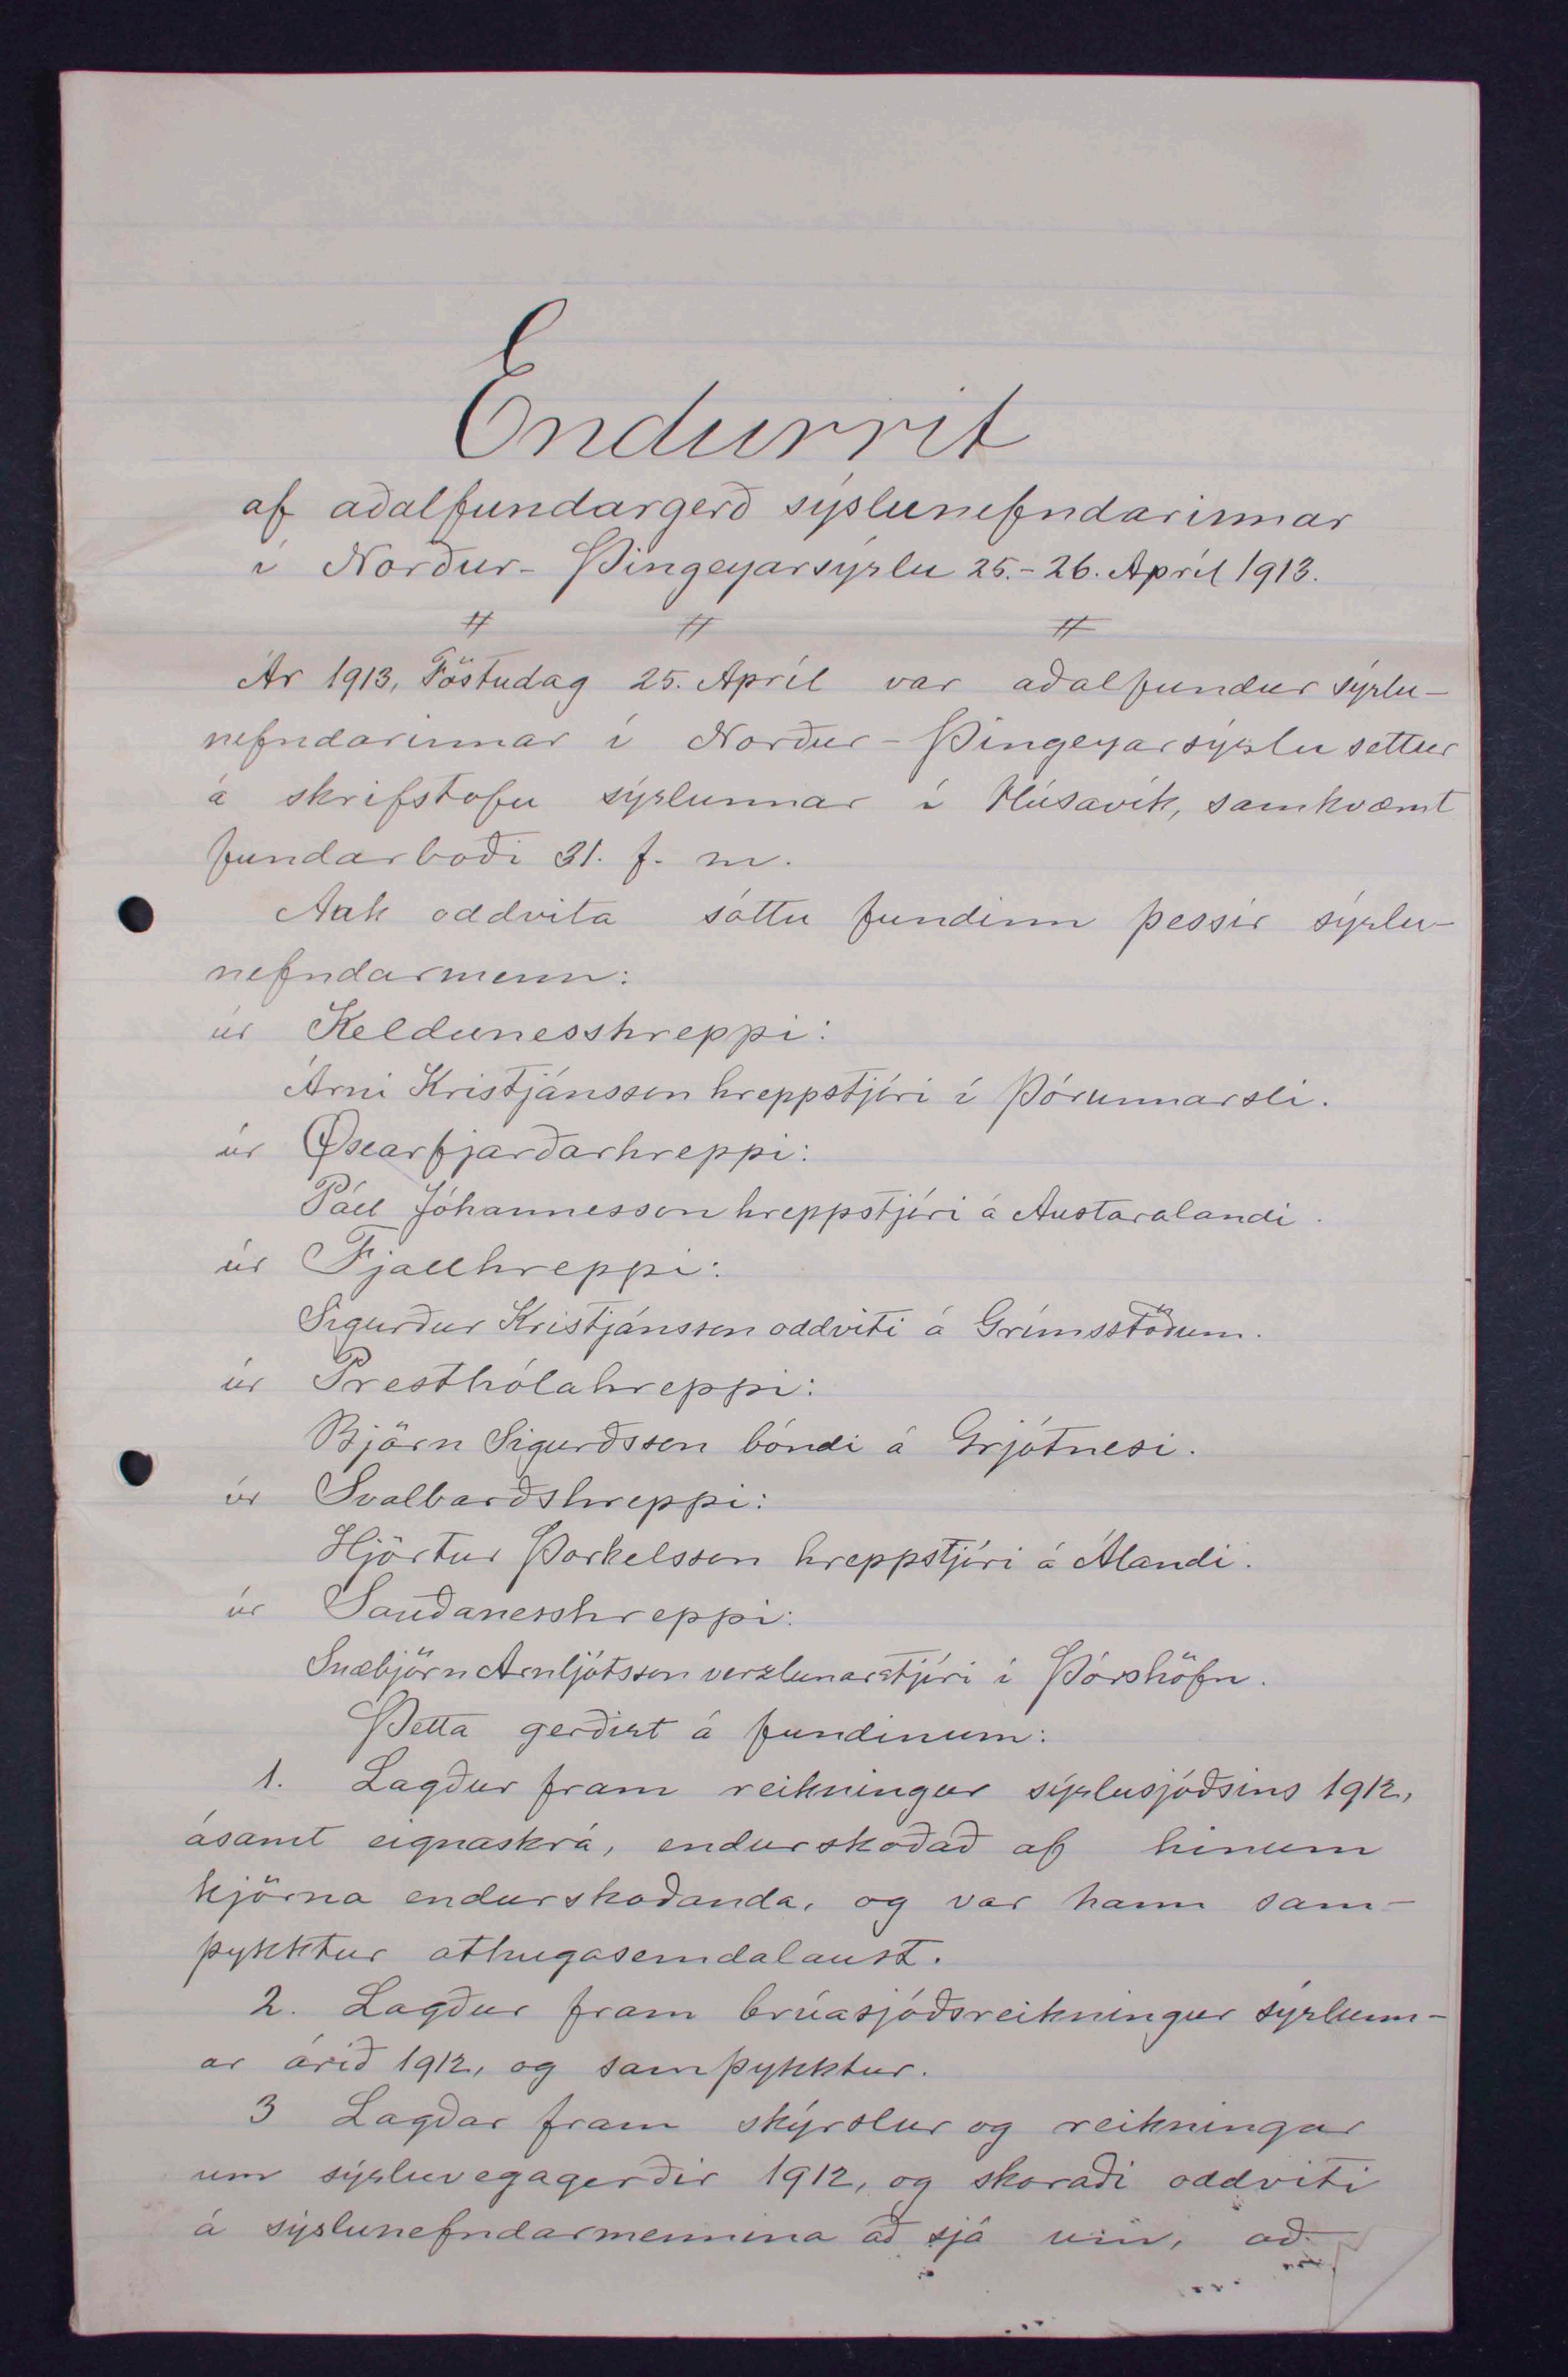 Endurrit
af aðalfundargerð sýslunefndarinnar
í Norður-Þingeyarsýslu 25.-26. Apríl 1913.
Ár 1913, Föstudag 25. Apríl var aðalfundur sýslu-
nefndarinnar í Norður-Þingeyarsýslu settur
á skrifstofu sýslunnar í Húsavík, samkvæmt
fundarboði 31. f. m.
Auk oddvita sóttu fundinn þessir sýslu-
nefndarmenn:
úr Keldunesshreppi:
Árni Kristjánsson hreppstjóri í Þórunnarseli.
úr Øxarfjarðarhreppi:
Páll Jóhannesson hreppstjóri á Austaralandi.
úr Fjallhreppi:
Sigurður Kristjánsson oddviti á Grímsstöðum.
úr Presthólahreppi:
Björn Sigurðsson bóndi á Grjótnesi.
úr Svalbarðshreppi:
Hjörtur Þorkelsson hreppstjóri á Álandi.
úr Sauðanesshreppi:
Snæbjörn Arnljótsson verzlunarstjóri í Þórshöfn.
Þetta gerðist á fundinum:
1. Lagður fram reikningur sýslusjóðsins 1912,
ásamt eignaskrá, endurskoðað af hinum
kjörna endurskoðanda, og var hann sam-
þykktur athugasemdalaust.
2. Lagður fram brúasjóðsreikningur sýslunn-
ar árið 1912, og samþykktur.
3 Lagðar fram skýrslur og reikningar
um sýsluvegagerðir 1912, og skoraði oddviti
á sýslunefndarmennina að sjá um, að